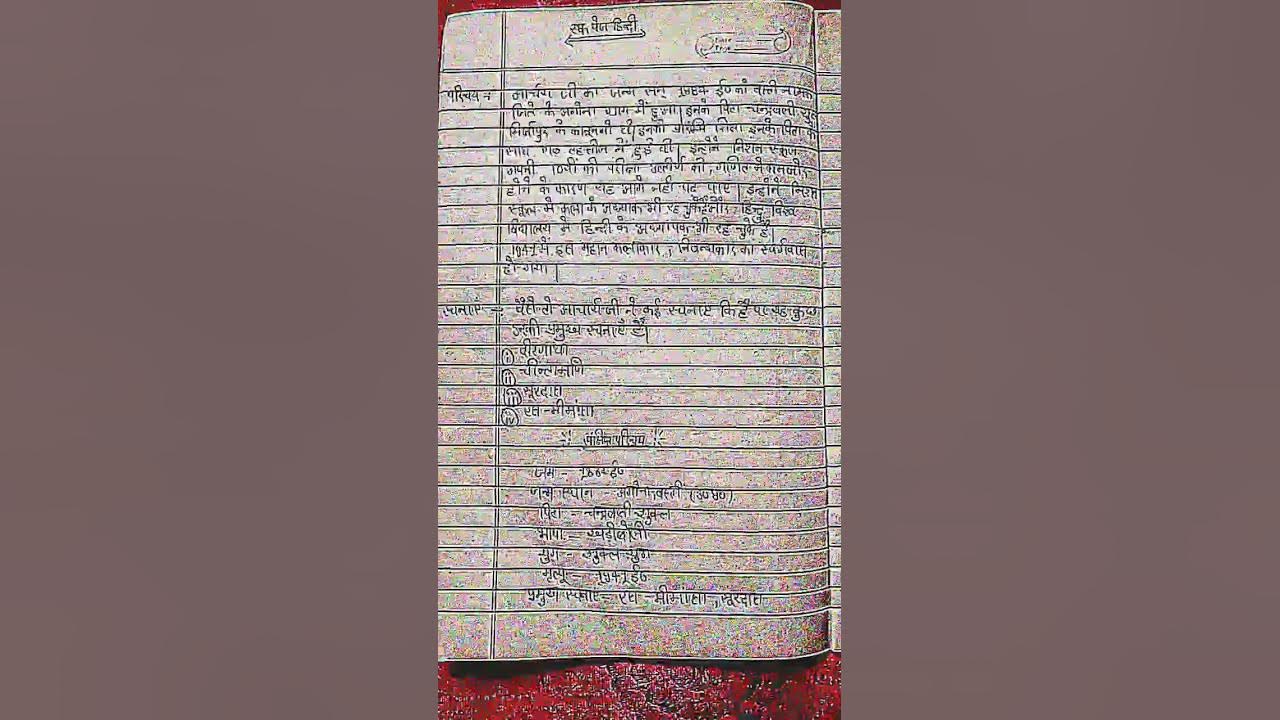 एक पेज हिन्दी
परिचय :- आचार्य जी का जन्म सन् 1884 ई० को बस्ती नामक
जिले के अगोना ग्राम में हुआ। इनके पिता चन्द्रबली शुक्ल
मिर्जापुर के कानूनगो थे। इनकी प्रारंभि शिक्षा इनके पिता के
साथ राठ तहसील में हुई थी। इन्होंने मिशन स्कूल
अपनी 10वीं की परीक्षा उत्तीर्ण की, गणित मे कमजोर
होने के कारण यह आगे नही पढ़ पाए। इन्होंने मिशन
स्कूल मे कला के अध्यापक भी रह चुके हिन्दु विश्व
विद्यालय मे हिन्दी के अध्यापक भी रह चुके हैं।
1941 में इस महान कलाकार, निबन्धकार का स्वर्गवास
हो गया।
रचनाएं :- वैसे तो आचार्य जी ने कई रचनाएं कि है पर यह कुछ
उनकी प्रमुख रचनाएं हैं।
(i) वीरगाथा
(ii) चीन्तामणि
(iii) सूरदास
(iv) रस-मीमांसा
संक्षिप्त परिचय
जन्म - 1884 ई०
जन्म स्थान - अगोना, बस्ती (उ०प्र०)
पिता - चन्द्रबली शुक्ल
भाषा - खड़ीबोली
युग - शुक्ल युग
मृत्यु - 1941 ई०
प्रमुख रचनाएं - रस-मीमांसा, सूरदास